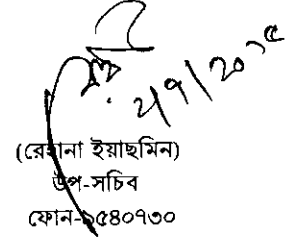 ২/৭/২০১৫
(রেহানা ইয়াছমিন)
উপ-সচিব
ফোন-৯৫৪০৭৩০